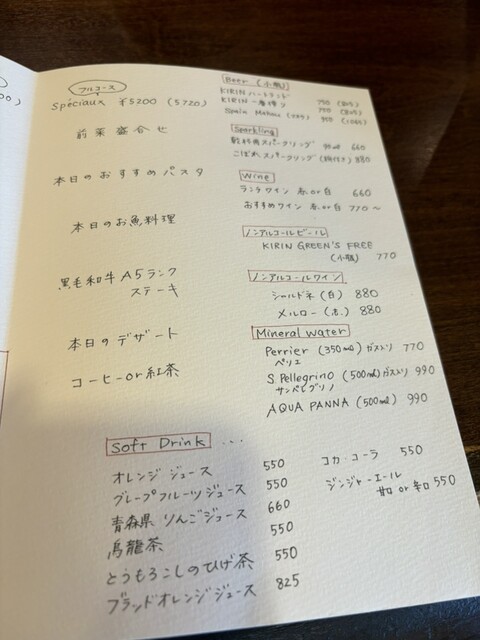 フルコース
Spéciaux ¥5200 (5720)
前菜盛合せ
本日のおすすめパスタ
本日のお魚料理
黒毛和牛A5ランク
ステーキ
本日のデザート
コーヒーor紅茶
Beer (小瓶)
KIRIN ハートランド
KIRIN 一番搾り 750 (825)
Spain Mahou
Sparkling
乾杯用スパークリング 660
こぼれスパークリング 880
Wine
ランチワイン 赤or白 660
おすすめワイン 赤or白 770〜
ノンアルコールビール
KIRIN GREEN'S FREE
(小瓶) 770
ノンアルコールワイン
シャルドネ (白) 880
メルロー (赤) 880
Mineral Water
Perrier (350ml) ガス入り 770
ペリエ
S.Pellegrino (500ml) ガス入り 990
サンペレグリノ
AQUA PANNA (500ml) 990
Soft Drink ...
オレンジジュース 550
グレープフルーツジュース 550
青森県りんごジュース 660
烏龍茶 550
とうもろこしのひげ茶 550
ブラッドオレンジジュース 825
コカ・コーラ 550
ジンジャーエール
甘口or辛口 550